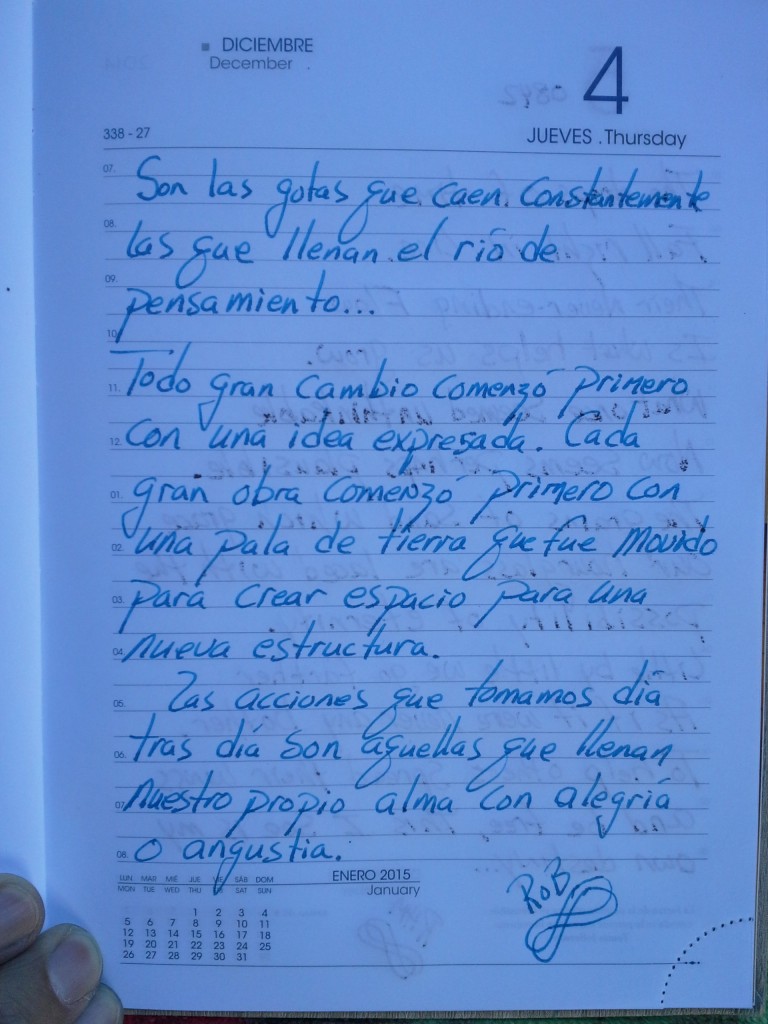 DICIEMBRE
December
4
338 - 27
JUEVES . Thursday
07. Son las gotas que caen constantemente
08. las que llenan el rió de
09. pensamiento...
10
11. Todo gran cambio comenzó primero
12. con una idea expresada. Cada
01. gran obra comenzó primero con
02. una pala de tierra que fue movido
03. para crear espacio para una
04. nueva estructura.
05. Las acciones que tomamos diá
06. tras diá son aquellas que llenan
07. nuestro propio alma con alegriá
08. o angustia.
ENERO 2015
January
LUN MAR MIÉ JUE VIE SÁB DOM
MON TUE WED THU FRI SAT SUN
1 2 3 4
5 6 7 8 9 10 11
12 13 14 15 16 17 18
19 20 21 22 23 24 25
26 27 28 29 30 31
RoB